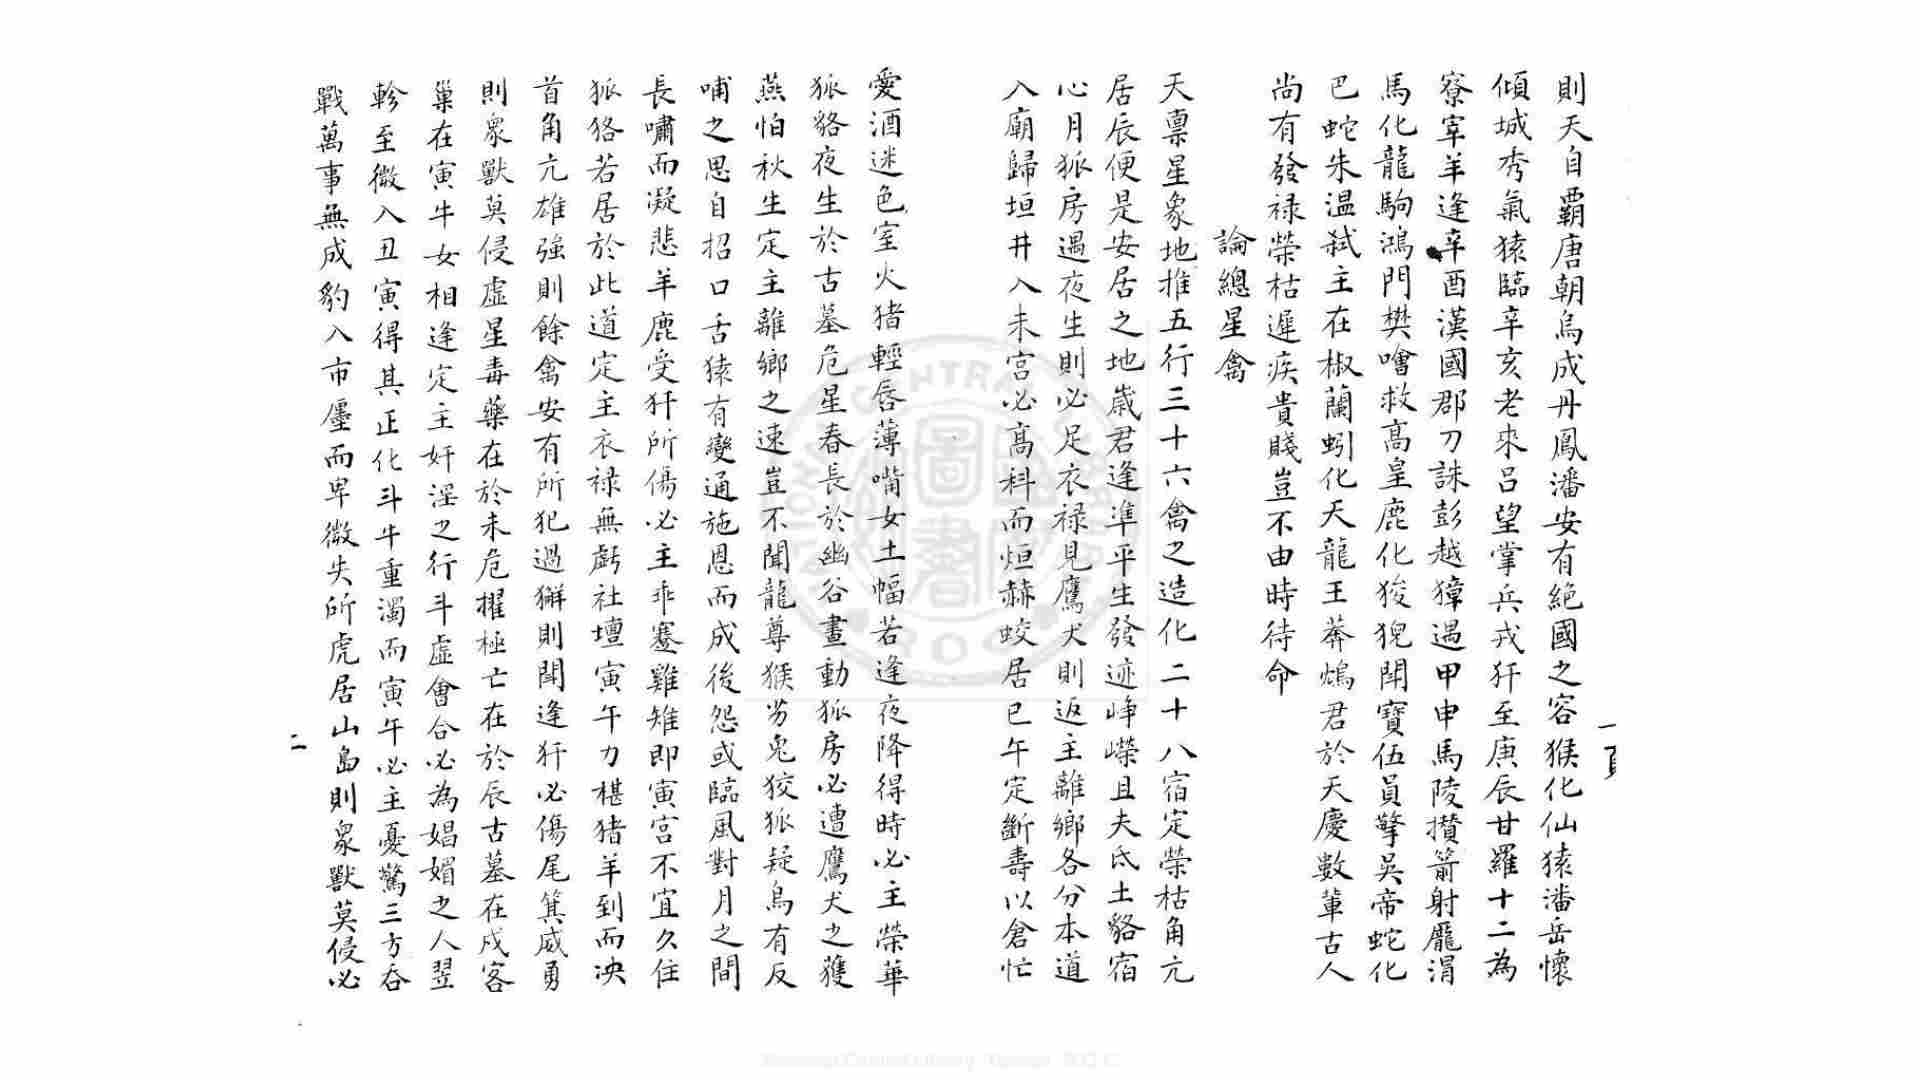 則天自霸唐朝烏成丹鳳潘安有絕國之容猴化仙猿潘岳懷
傾城秀氣猿臨辛亥老來呂望掌兵戎犴至庚辰甘羅十二為
寮宰羊逢辛酉漢國郡刀誅彭越獐遇甲申馬陵攢箭射龐涓
馬化龍駒鴻門樊噲救高皇鹿化狻猊鬪寶伍員擎吳帝蛇化
巴蛇朱温弒主在椒蘭蚓化天龍王莽鴆君於天慶數輩古人
尚有發禄榮枯遲疾貴賤豈不由時待命
論總星禽
天禀星象地推五行三十六禽之造化二十八宿定榮枯角亢
居辰便是安居之地歲君逢準平生發迹崢嶸且夫氐土貉宿
心月狐房遇夜生則必足衣禄見鷹犬則返主離鄉各分本道
入廟歸垣井入未宮必高科而烜赫蛟居巳午定斷壽以倉忙
愛酒迷色室火猪輕唇薄嘴女土蝠若逢夜降得時必主榮華
狐貉夜生於古墓危星春長於幽谷晝動狐房必遭鷹犬之獲
燕怕秋生定主離鄉之速豈不聞龍尊猴劣兔狡狐疑烏有反
哺之思自招口舌猿有變通施恩而成後怨或臨風對月之間
長嘯而凝悲羊鹿受犴所傷必主乖蹇雞雉即寅宮不宜久住
狐狢若居於此道定主衣禄無虧社壇寅午力椹猪羊到而泱
首角亢雄強則餘禽安有所犯過獬則鬪逢犴必傷尾箕威勇
則衆獸莫侵虛星毒藥在於未危擢極亡在於辰古墓在戌客
巢在寅牛女相逢定主奸淫之行斗虛會合必為娼媚之人翌
軫至微入丑寅得其正化斗牛重濁而寅午必主憂驚三方吞
戰萬事無成豹入市廛而卑微失所虎居山島則衆獸莫侵必
一頁
二
NATIONAL CENTRAL LIBRARY
ROC
圖書
National Central Library, Taiwan, R.O.C.